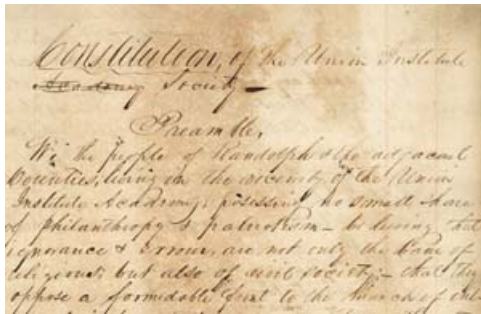 Constitution, of the Union Institute
Academy Society —
Preamble,
We the people of Randolph & the adjacent
Counties, living in the vicinity of the Union
Institute Academy; possessing no small share
of philanthropy & patriotism – believing that
ignorance & errour, are not only the bane of
religious, but also of civil society; – that they
oppose a formidable front to the march of